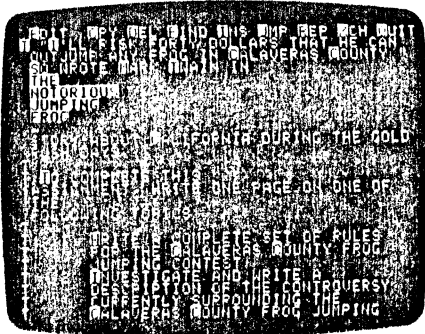 EDIT CPY DEL FIND INS JMP REP XCH QUIT
I'LL RISK FORTY DOLLARS THAT HE CAN
OUTJUMP ANY FROG IN CALAVERAS COUNTY
SO WROTE MARK TWAIN IN
THE
NOTORIOUS
JUMPING
FROG
STORY ABOUT CALIFORNIA DURING THE GOLD
TO COMPLETE THIS
WRITE ONE PAGE ON ONE OF
THE
FOLLOWING TOPICS
WRITE A COMPLETE SET OF RULES
FOR THE CALAVERAS COUNTY FROG
JUMPING CONTEST
INVESTIGATE AND WRITE A
DESCRIPTION OF THE CONTROVERSY
CURRENTLY SURROUNDING THE
CALAVERAS COUNTY FROG JUMPING